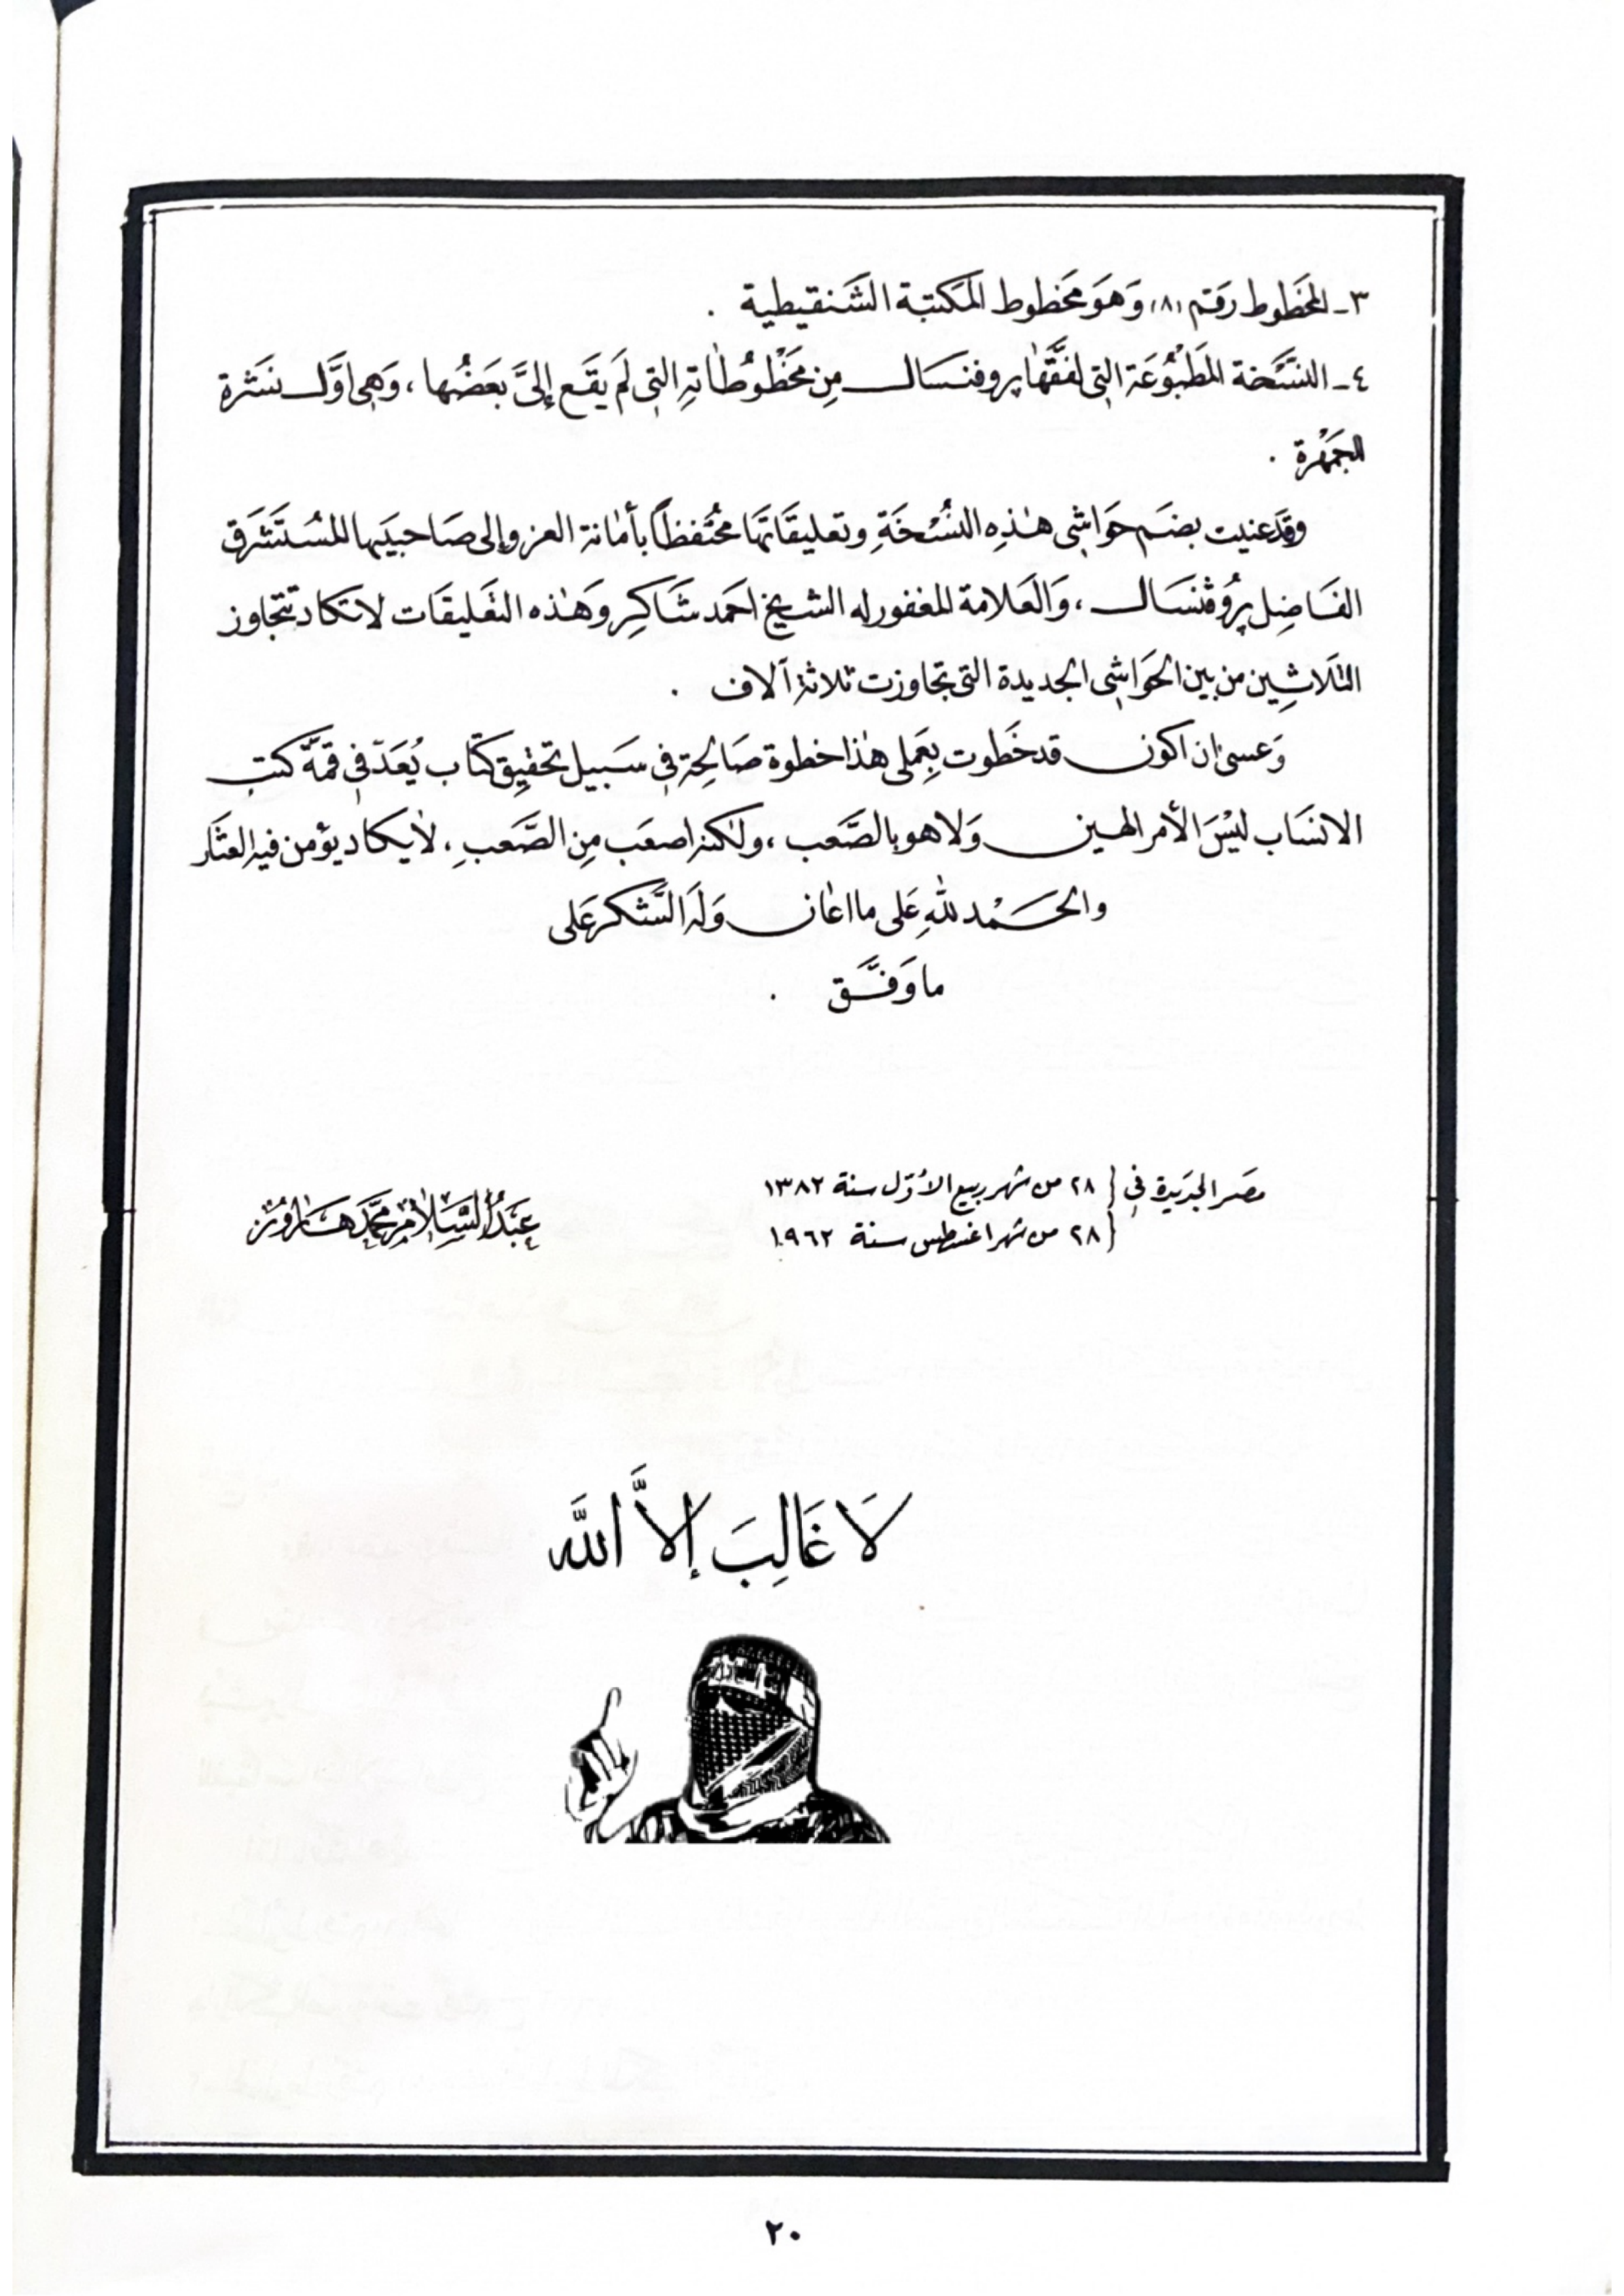 ٣ـ المخطوط رقم (٨) وَهوَ مخطوط المكتبة الشَنقيطية .
٤ـ النسَّخة المَطبُوعَة التي لفقَّها پروفنسال من مَخْطُوطاته التي لَم يقَع إليَّ بَعَضُها ، وَهي اوَّل نشَرة
الجمَهْرة .
وقدَعنيت بضَم حوَاشي هٰذِه النسُّخَةِ وتعليقَاتهَا محُتفظاً بأمانة العزو إلى صَاحبيَها المسُتَشَرق
الفَاضِل پرُوڤنسَال ، وَالعَلامة المغفور له الشيخ احمَد شَاكِر وَهٰذه التعَليقَات لاتكاد تتجاوز
الثلاثِين من بين الحوَاشي الجديدة التي تجاوزت ثلاثة آلاف .
وَعسىٰ ان اكون قدخَطوت بعِملي هٰذا خطوة صَالحِة في سَبيل تحقيِق كتَاب يُعَدّ في قمَّة كتب
الانسَاب ليسْ الأمر الهين وَلا هو بالصَّعب ، ولٰكنه اصعَب مِن الصَّعَبِ ، لايكاد يؤمن فيه العثَار
والحَمْد للهِ عَلى ما اعَان وَلهَ الشَّكر عَلى
ما وَفَّق .
مصَر الجدَيدة في { ٢٨ من شهر ربيع الأوّل سنة ١٣٨٢
{ ٢٨ من شهر اغسطس سنة ١٩٦٢
عبَدُ السَّلام محمَّد هَارون
لَا غَالِبَ إلاَّ اللَّه
٢٠